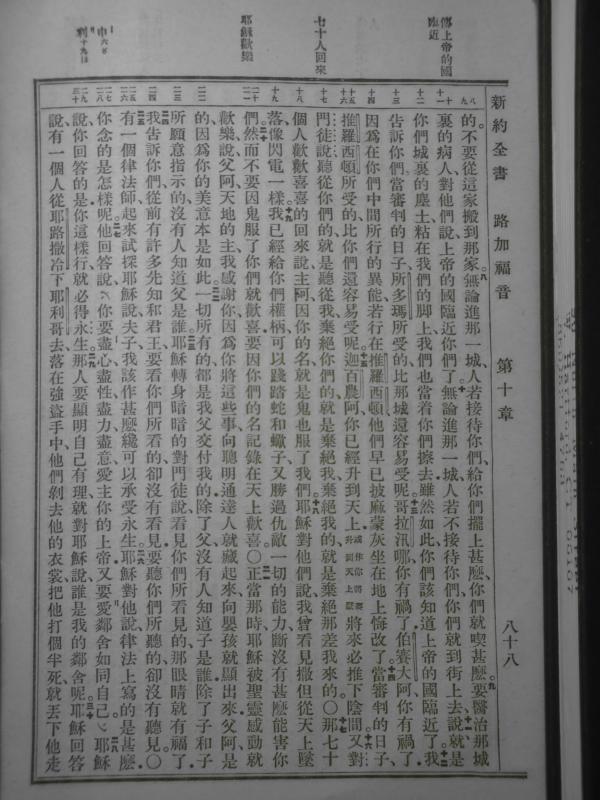 傳上帝的國臨近
七十人回來
耶穌歡樂
申六5
利十九18
新約全書 路加福音 第十章 八十八
的不要從這家搬到那家無論進那一城人若接待你們給你們擺上甚麼你們就喫甚麼要醫治那城
裏的病人對他們說上帝的國臨近你們了無論進那一城人若不接待你們你們就到街上去說就是
你們城裏的塵土粘在我們的脚上我們也當着你們擦去雖然如此你們該知道上帝的國臨近了我
告訴你們當審判的日子所多瑪所受的比那城還容易受呢哥拉汛哪你有禍了伯賽大阿你有禍了
因爲在你們中間所行的異能若行在推羅西頓他們早已披麻蒙灰坐在地上悔改了當審判的日子
推羅西頓所受的比你們還容易受呢迦百農阿你已經升到天上將來必推下陰間又對
門徒說聽從你們的就是聽從我棄絕你們的就是棄絕我棄絕我的就是棄絕那差我來的〇那七十
個人歡歡喜喜的回來說主阿因你的名就是鬼也服了我們耶穌對他們說我曾看見撒但從天上墜
落像閃電一樣我已經給你們權柄可以踐踏蛇和蠍子又勝過仇敵一切的能力斷沒有甚麼能害你
們然而不要因鬼服了你們就歡喜要因你們的名記錄在天上歡喜〇正當那時耶穌被聖靈感動就
歡樂說父阿天地的主我感謝你因爲你將這些事向聰明通達人就藏起來向嬰孩就顯出來父阿是
的因爲你的美意本是如此一切所有的都是我父交付我的除了父沒有人知道子是誰除了子和子
所願意指示的沒有人知道父是誰耶穌轉身暗暗的對門徒說看見你們所看見的那眼睛就有福了
我告訴你們從前有許多先知和君王要看你們所看的卻沒有看見要聽你們所聽的卻沒有聽見〇
有一個律法師起來試探耶穌說夫子我該作甚麼纔可以承受永生耶穌對他說律法上寫的是甚麼
你念的是怎樣呢他回答說你要盡心盡性盡力盡意愛主你的上帝又要愛鄰舍如同自己耶穌
說你回答的是你這樣行就必得永生那人要顯明自己有理就對耶穌說誰是我的鄰舍呢耶穌回答
說有一個人從耶路撒冷下耶利哥去落在強盜手中他們剝去他的衣裳把他打個半死就丟下他走